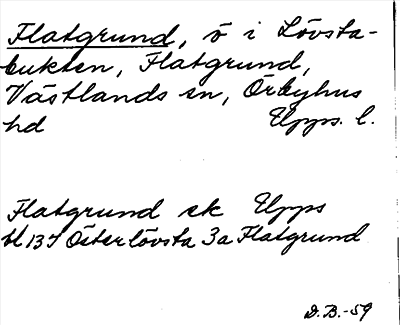 Flatgrund, ö i Lövsta-
bukten, Flatgrund,
Västlands sn, Örbyhus
hd Upps. l.
Flatgrund ek Upps
bl 137 Österlövsta 3a Flatgrund
D.B.-59